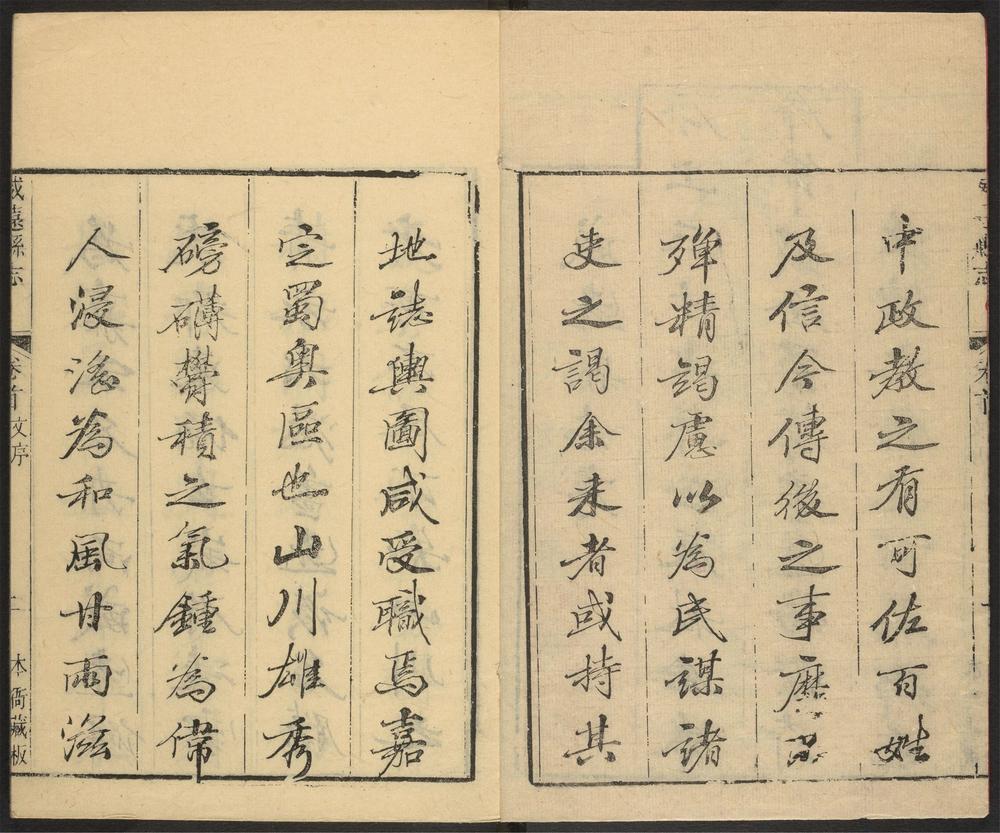 縣志
中政教之有可佐百姓
及信今傳後之事靡不
殫精竭慮以為民謀諸
吏之謁余來者或持其
地誌輿圖咸受職焉嘉
定蜀奥區也山川雄秀
磅礴鬱積之氣鍾為偉
人浸滛為和風甘雨滋
威遠縣志
卷首 文序
二
本衙藏板